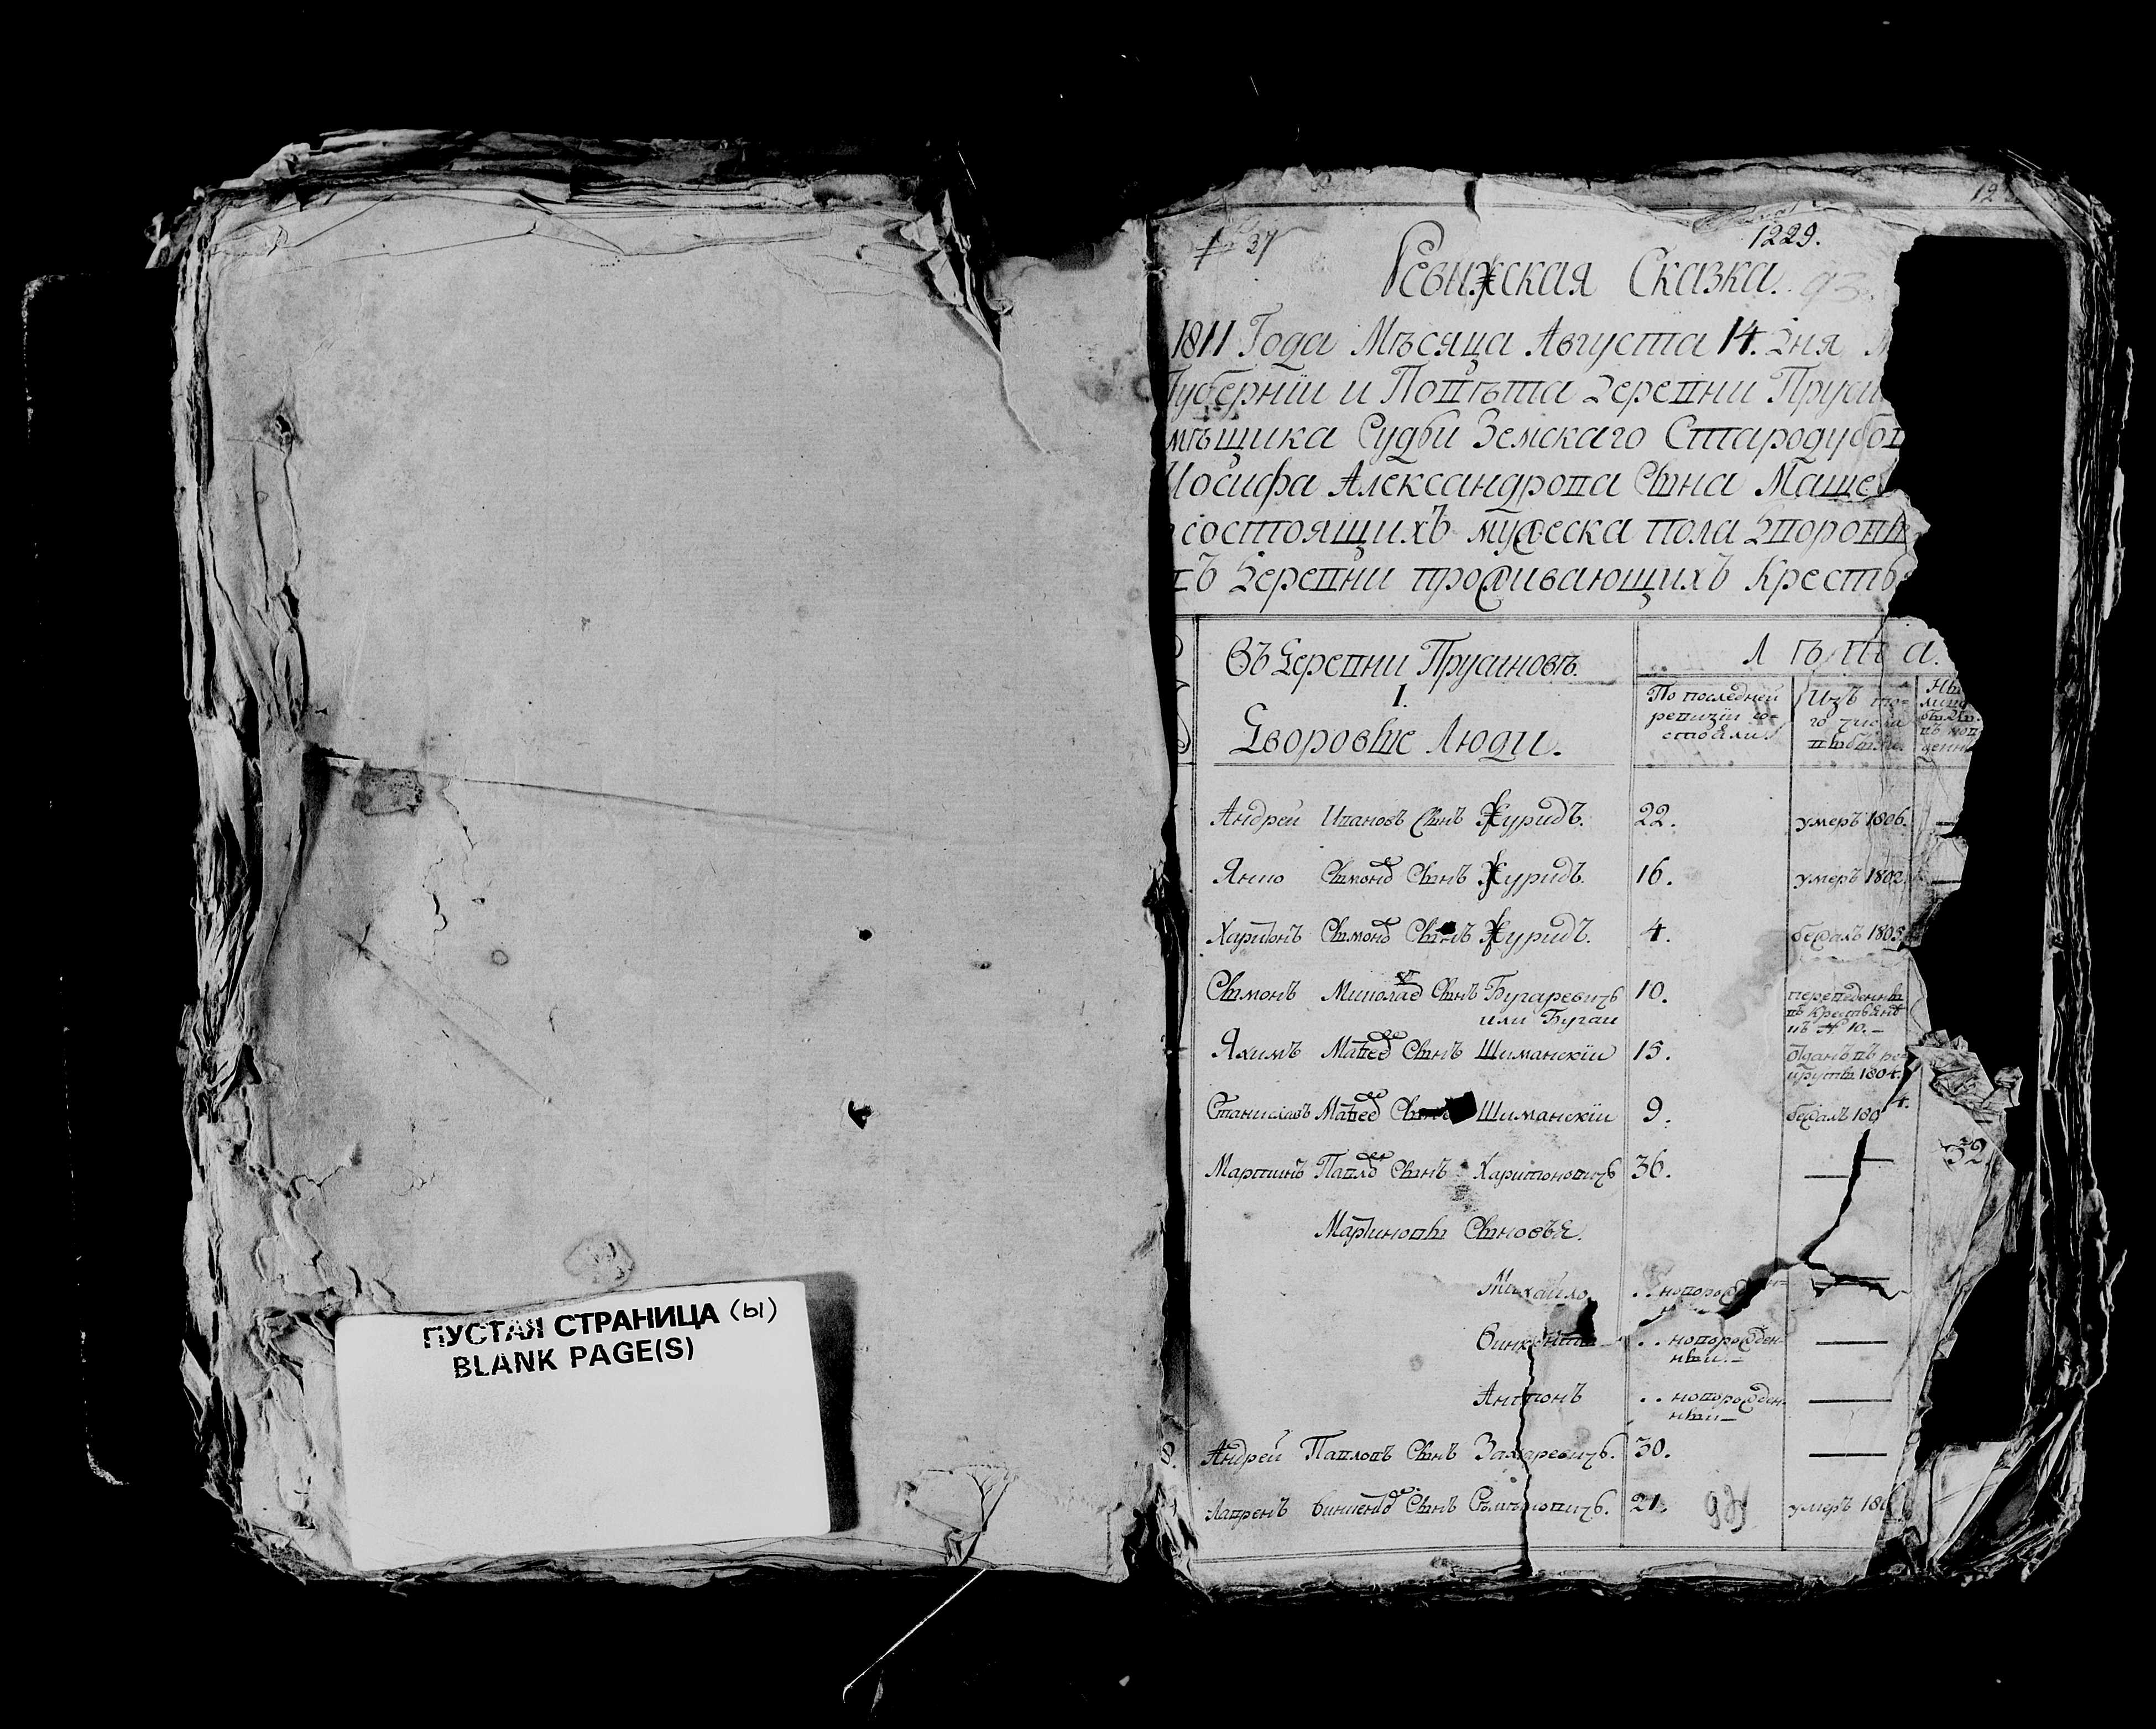 ПУСТАЯ СТРАНИЦА (ы)
BLANK PAGE(S)
37
1229.
Ревижская Сказка.
93.
1811 Года Мѣсяца Августа 14. дня
Губернїи и Повѣта деревни Пруси
мѣщика Судьи Земскаго Стародубов
Іосифа Александрова Сына Маще
состоящихъ мужеска пола дворовы
въ деревни проживающихъ Крестья
Въ деревни Прусиновѣ.
Л ѣ т а.
I.
Дворовые Люди.
По последней
ревизїи со-
стояли
Изъ то-
го числа
выбыли
Андрей Ивановъ Сынъ Журидъ. 22. умеръ 1806.
Янко Сымонов Сынъ Журидъ. 16. умеръ 1802
Харитонъ Сымонов Сынъ Журидъ. 4. бежалъ 1805.
Сымонъ Миколаев Сынъ Бугаревичъ 10. переведенны
или Бугаи въ Крестьяне
въ № 10.
Яхимъ Матеев Сынъ Шиманскїи 15. Отданъ въ ре-
круты 1804.
Станиславъ Матеев Сынъ Шиманскїи 9. бежалъ 1804.
Мартинъ Павлов Сынъ Харитоновичъ 36. — 52.
Мартиновы Сыновья.
Михайло . . новорож —
Винкентии . . новорожден- —
ныи. —
Антонъ . . новорожден- —
ныи —
8. Андрей Павловъ Сынъ Захаревичъ. 30. —
Лавренъ Винцентов Сынъ 21. умеръ 180